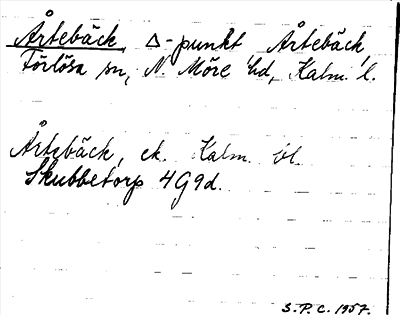 Årtebäck, Δ-punkt Årtebäck,
Förlösa sn, N. Möre hd, Kalm. l.
Årtebäck, ek. Kalm. öl.
Skubbetorp 4G9d.
S.P.C. 1957.